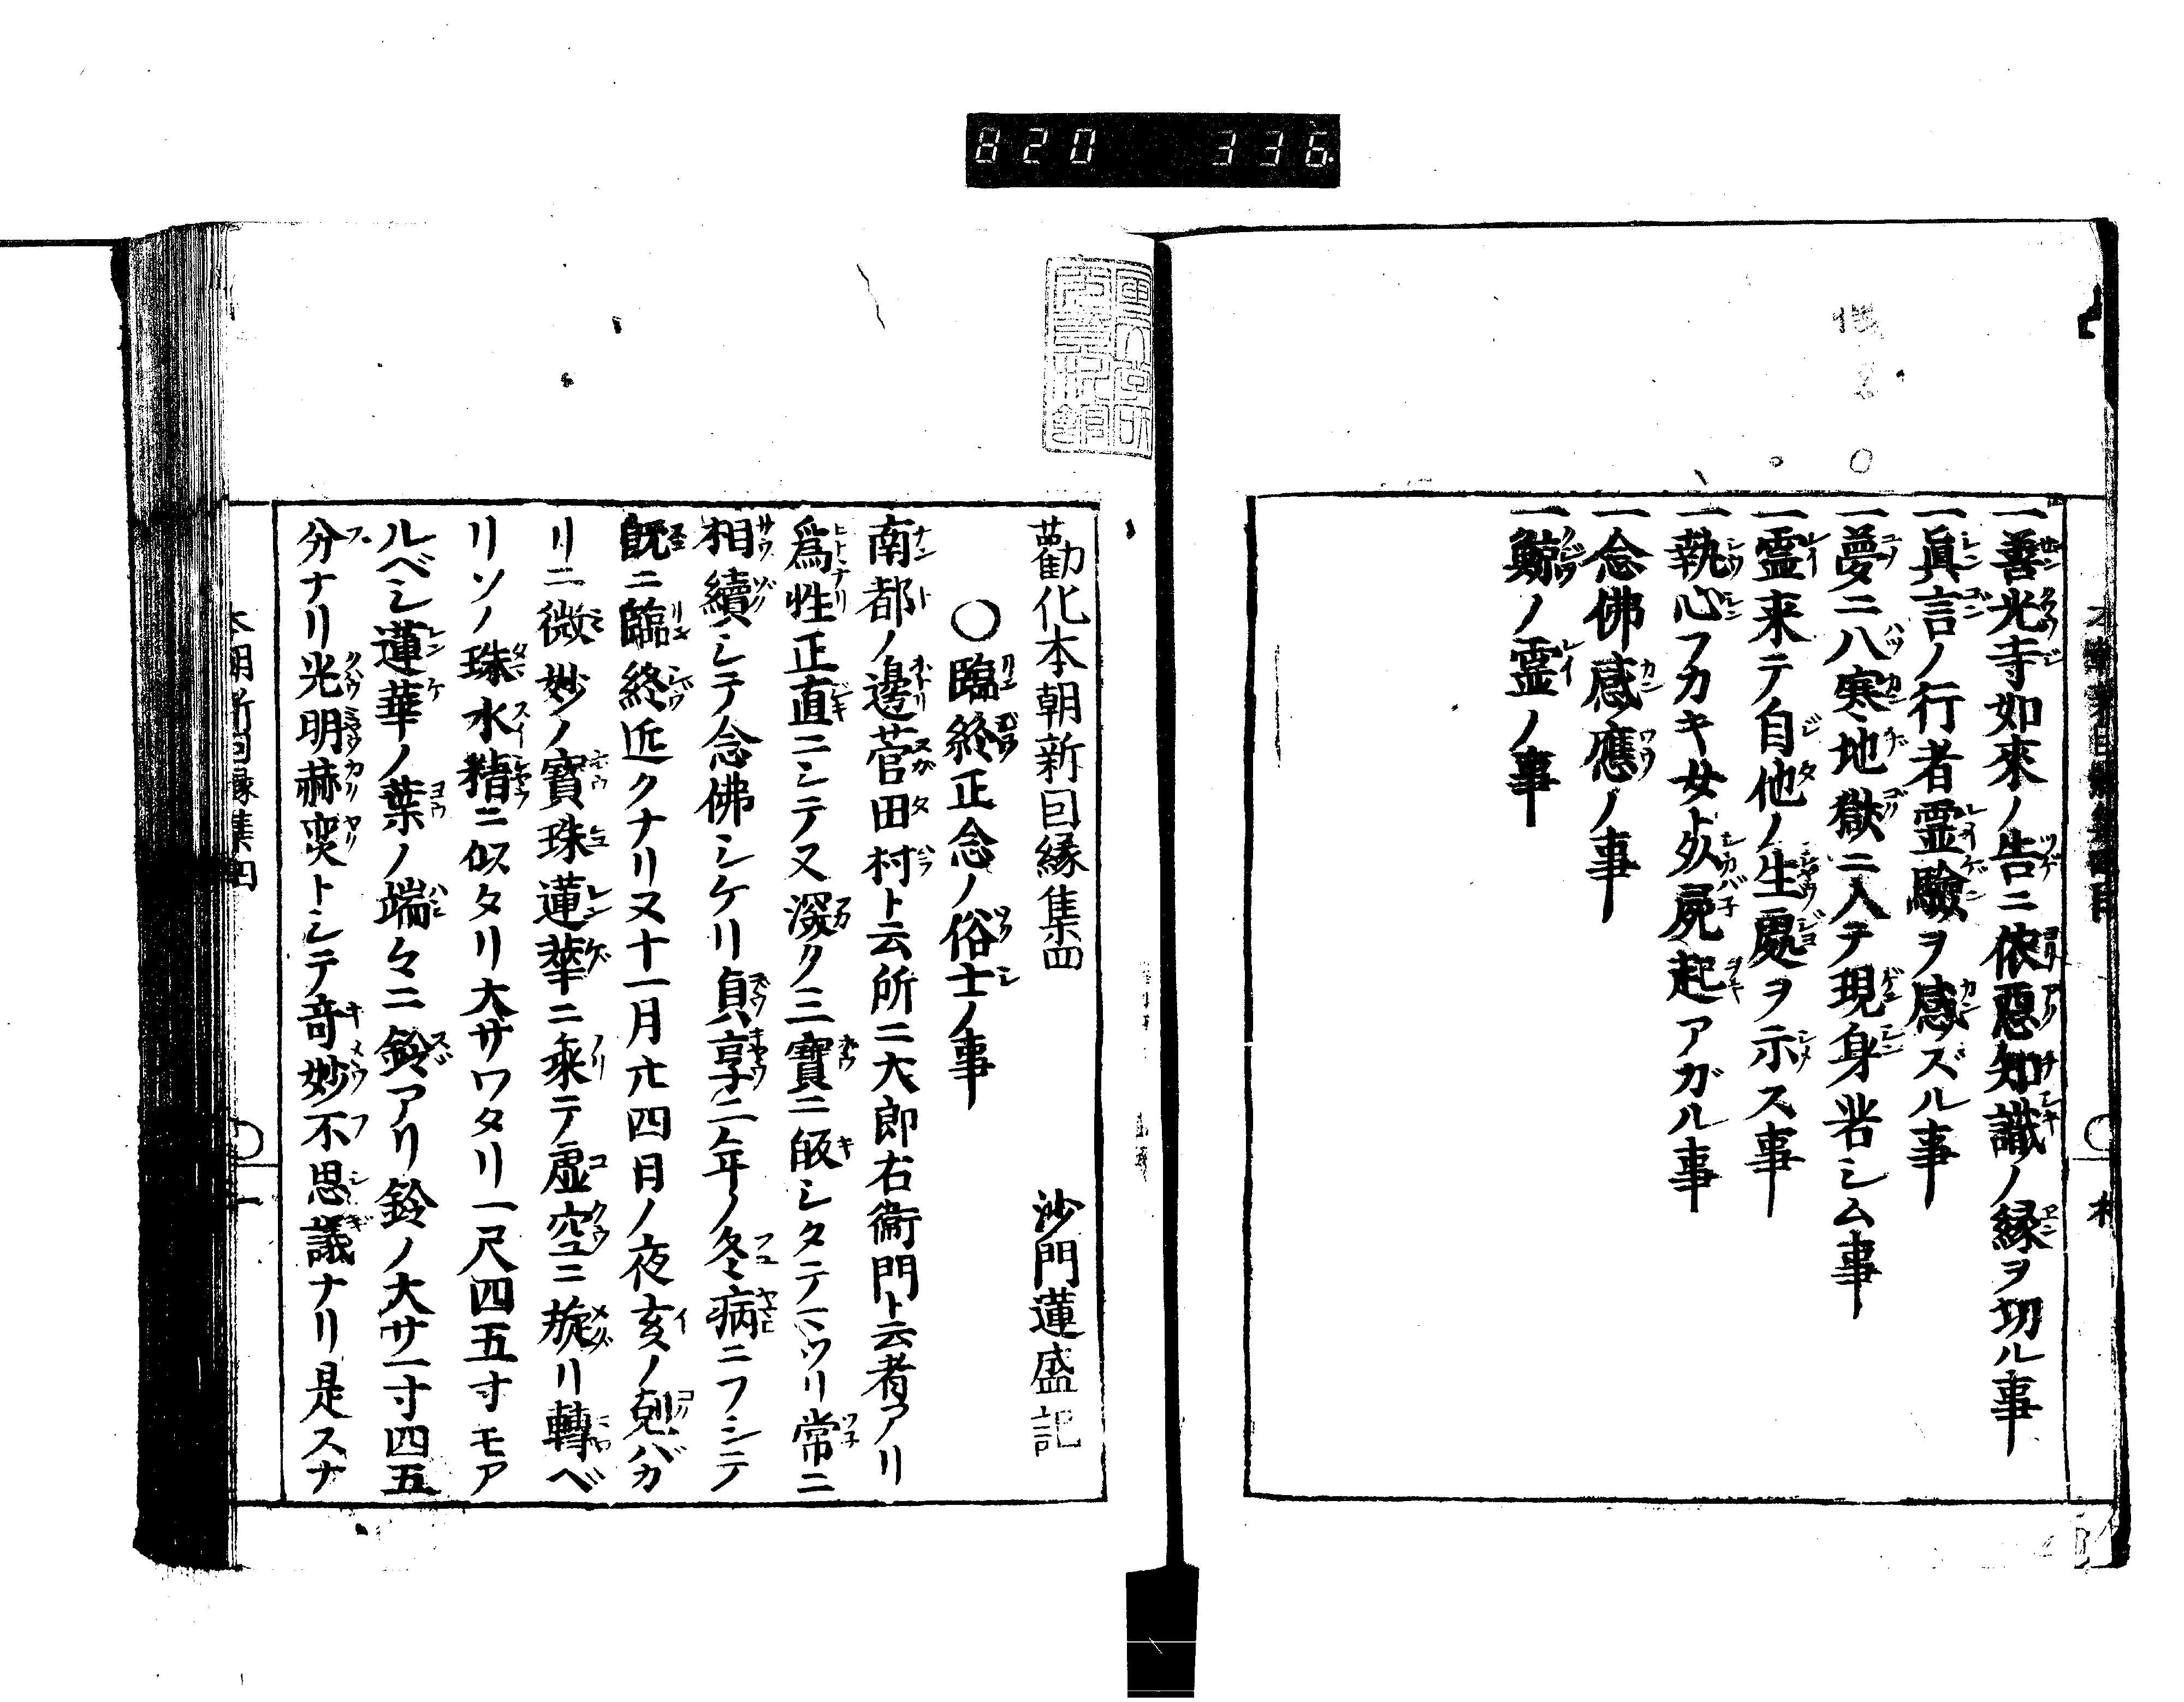 820 336
一善光寺如來ノ告ニ依惡知識ノ縁ヲ切ル事
一眞言ノ行者霊驗ヲ感ズル事
一夢ニ八寒地獄ニ入テ現身岩シム事
一霊来テ自他ノ生處ヲ示ス事
一執心フカキ女ノ死屍起アガル事
一念佛感應ノ事
一鯨ノ霊ノ事
勸化本朝新因縁集四
沙門蓮盛記
〇臨終正念ノ俗士ノ事
南都ノ邊菅田村ト云所ニ六郎右衞門ト云者アリ
爲性正直ニシテ又深ク三寶ニ皈シタテマツリ常ニ
相續シテ念佛シケリ貞享二年ノ冬病ニフシテ
既ニ臨終近クナリヌ十一月廿四日ノ夜亥ノ剋バカ
リニ微妙ノ寶珠蓮華ニ乘テ虚空ニ旋リ轉ベ
リソノ珠水精ニ似タリ大サワタリ一尺四五寸モア
ルベシ蓮華ノ葉ノ端々ニ鈴アリ鈴ノ大サ一寸四五
分ナリ光明赫奕トシテ竒妙不思議ナリ是スナ
本朝新因縁集四 〇 一